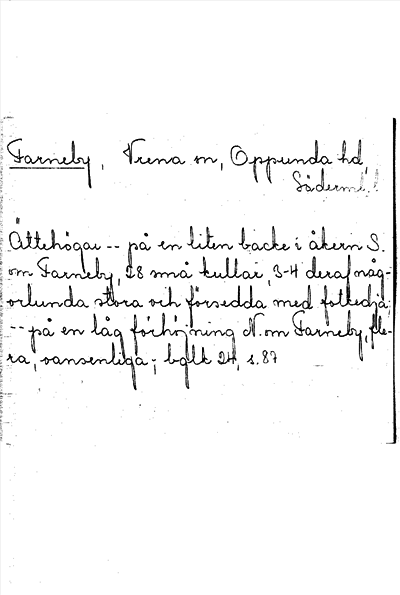 Farneby, Vrena sn, Oppunda hd,
Söderml.
Ättehögar -- på en liten backe i åkern S.
om Farneby, 28 små kullar, 3-4 deraf någ-
orlunda stora och försedda med fotkedja;
-- på en låg förhöjning N. om Farneby, fle-
ra, oansenliga; bglt 24, s. 87